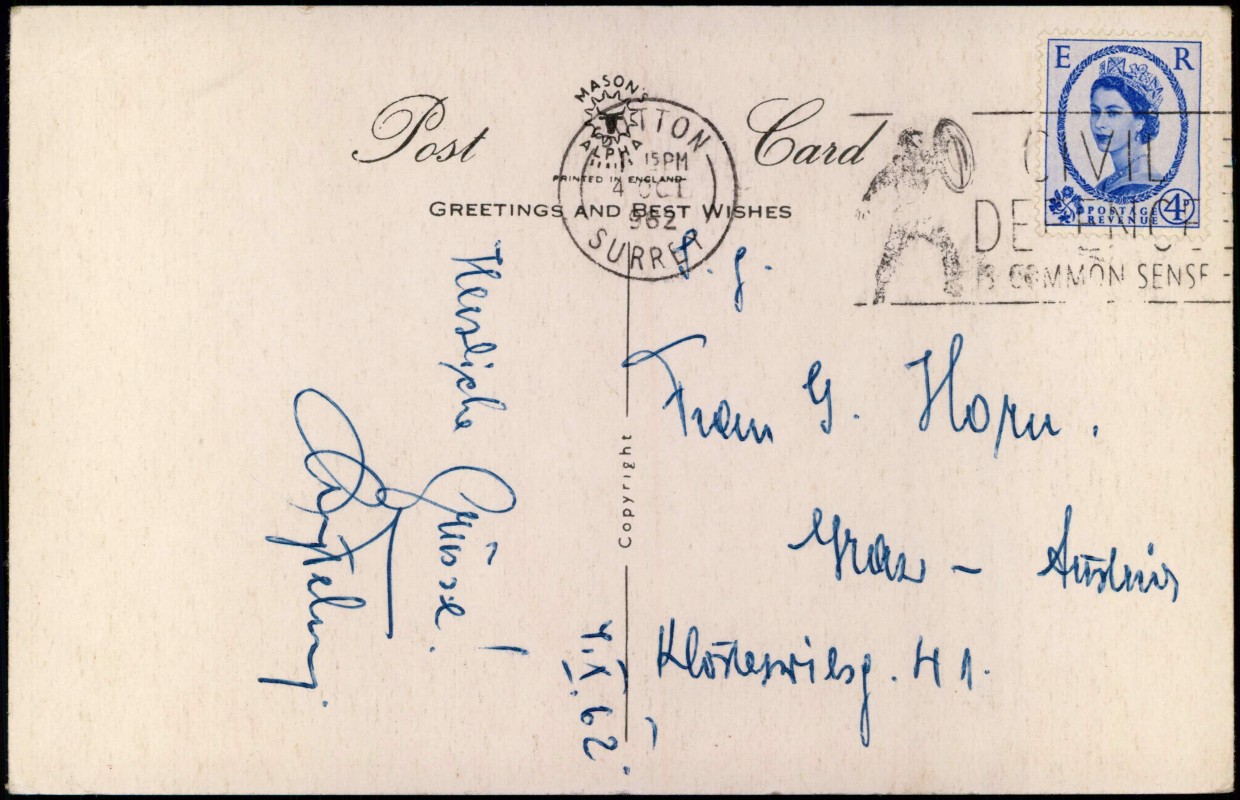 Post Card
MASON'S
ALPHA
PRINTED IN ENGLAND
GREETINGS AND BEST WISHES
TTON
15PM
4 OCT
962
SURREY
CIVIL
DEFENCE
IS COMMON SENSE
E R
POSTAGE
REVENUE
4D
Herzliche
Grüsse!
4.X.62.
Copyright
S. g.
Frau G. Horn.
Graz – Austria
41.